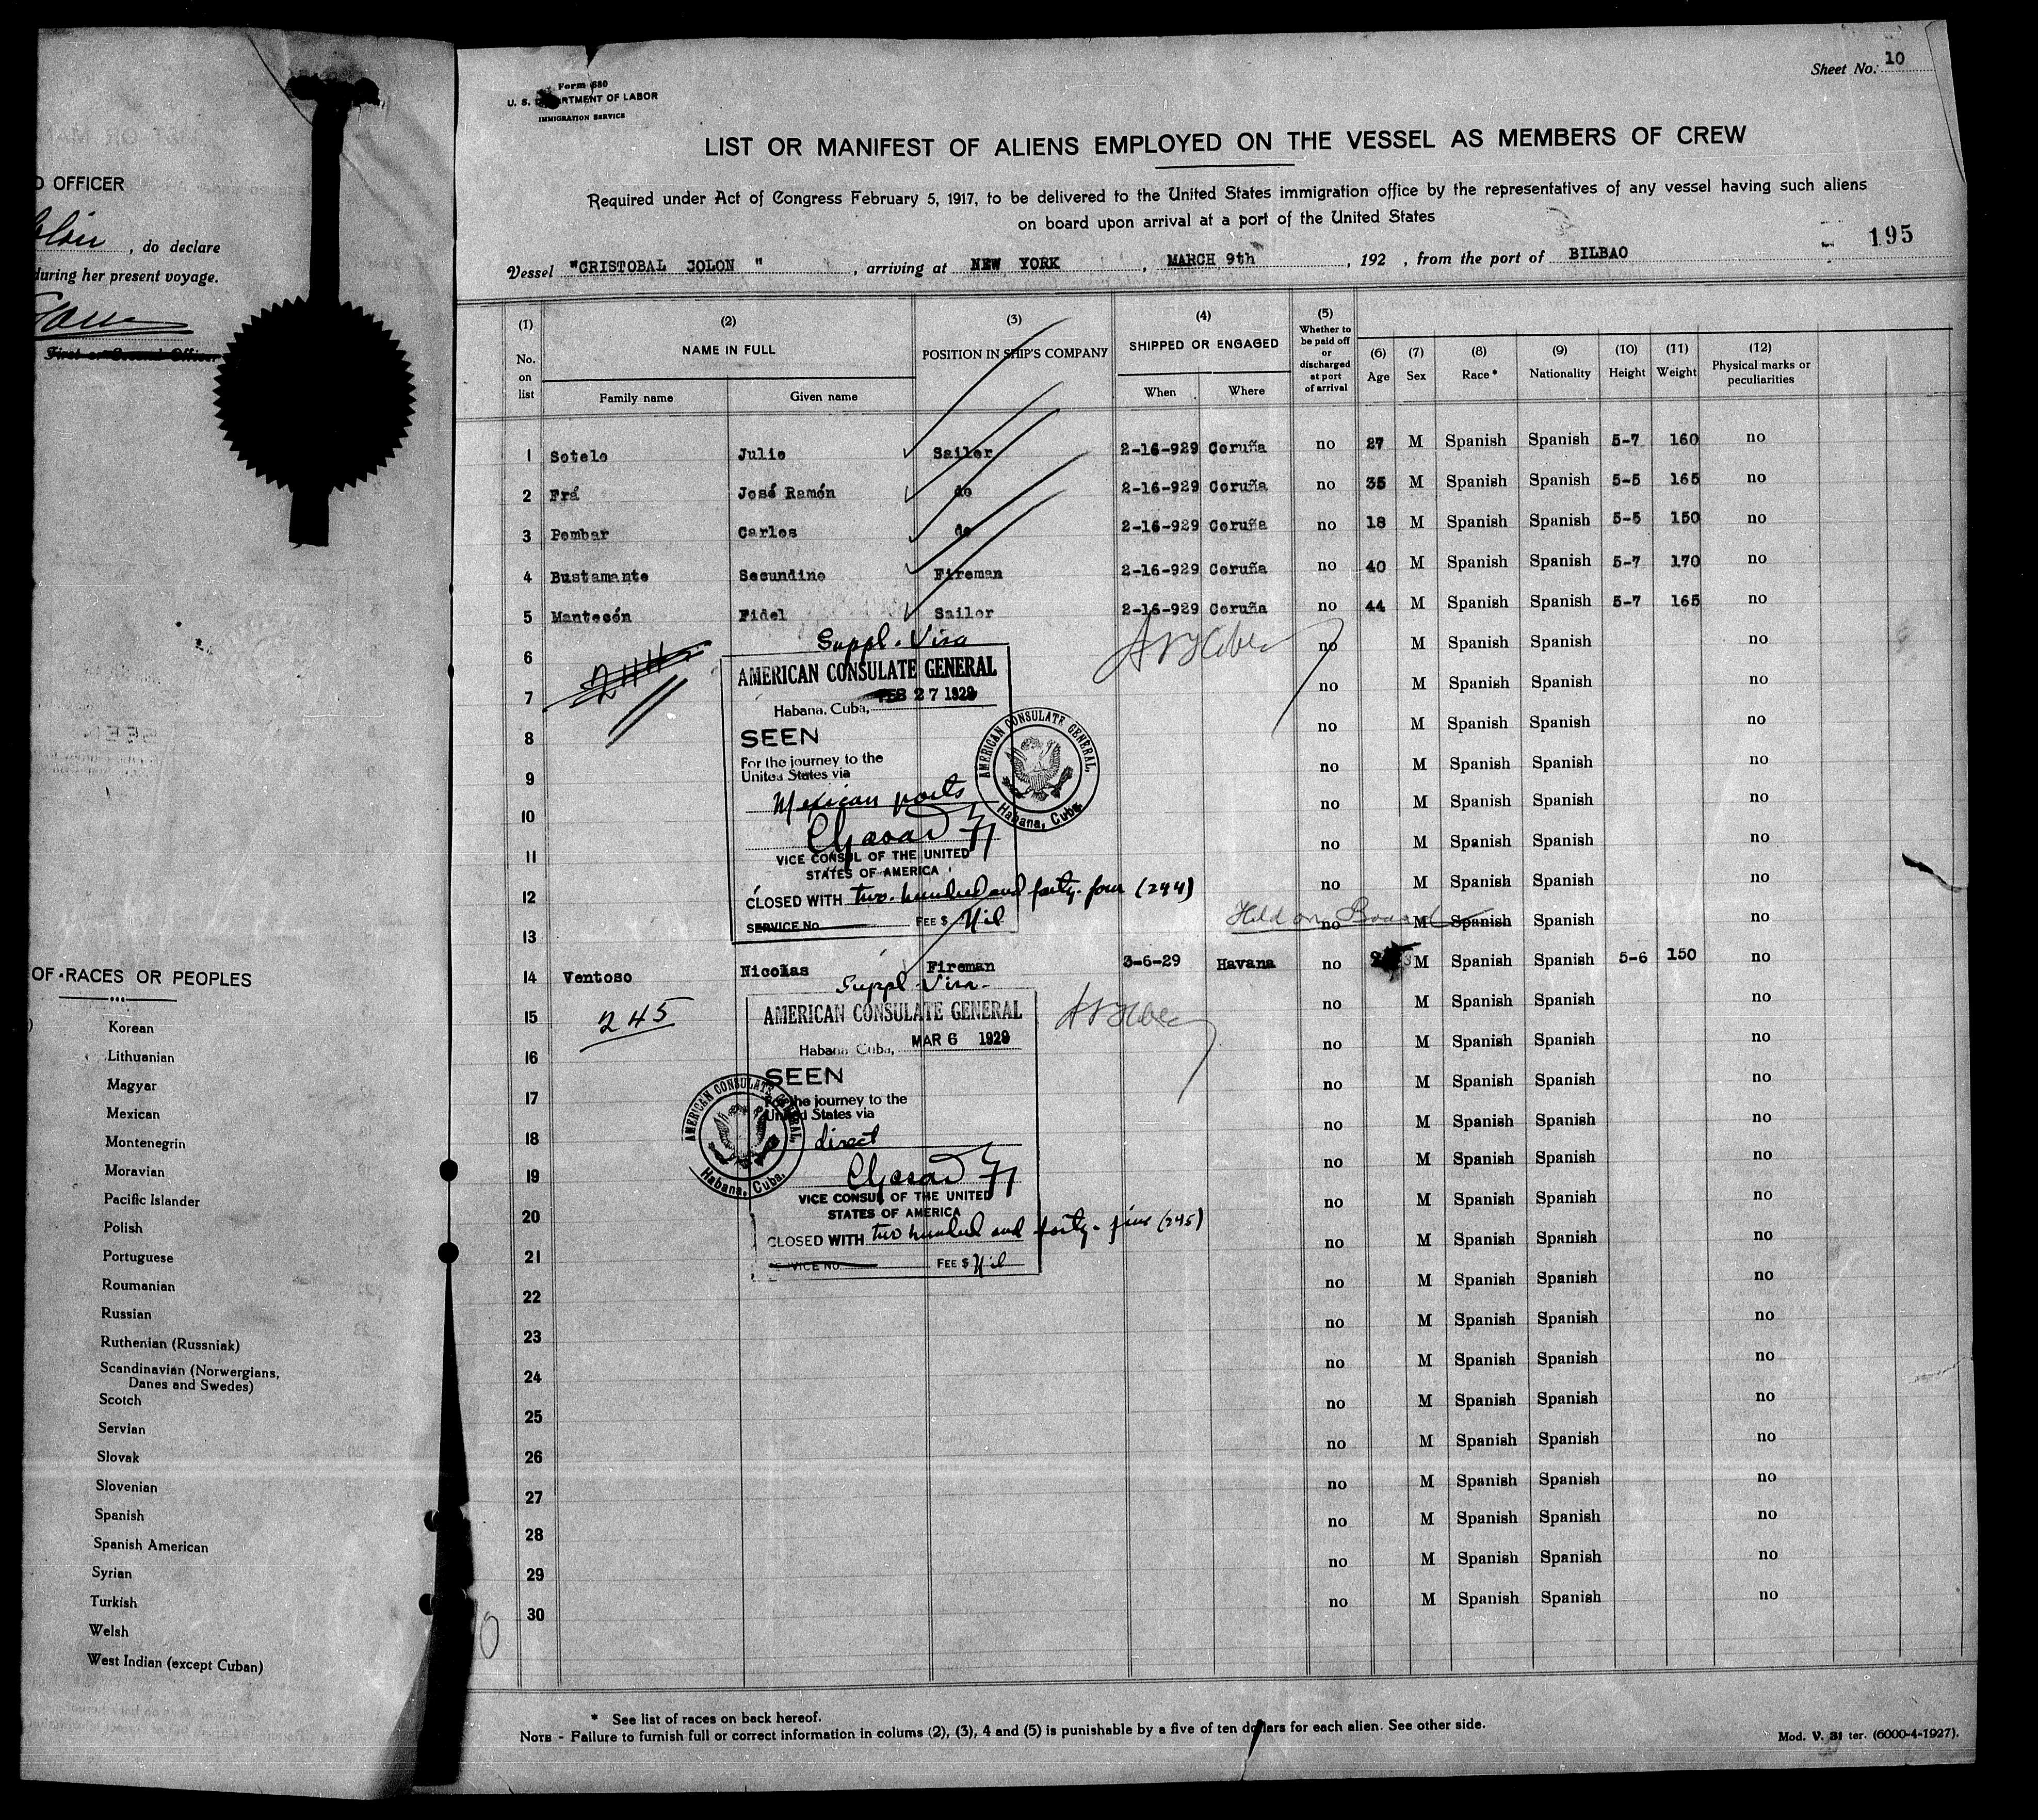 D OFFICER
, do declare
during her present voyage.
First or Second Officer
OF RACES OR PEOPLES
Korean
Lithuanian
Magyar
Mexican
Montenegrin
Moravian
Pacific Islander
Polish
Portuguese
Roumanian
Russian
Ruthenian (Russniak)
Scandinavian (Norwergians,
Danes and Swedes)
Scotch
Servian
Slovak
Slovenian
Spanish
Spanish American
Syrian
Turkish
Welsh
West Indian (except Cuban)
Sheet No. 10
Form 680
U. S. DEPARTMENT OF LABOR
IMMIGRATION SERVICE
LIST OR MANIFEST OF ALIENS EMPLOYED ON THE VESSEL AS MEMBERS OF CREW
Required under Act of Congress February 5, 1917, to be delivered to the United States immigration office by the representatives of any vessel having such aliens
on board upon arrival at a port of the United States
195
Vessel "CRISTOBAL JOLON " , arriving at NEW YORK , MARCH 9th , 192 , from the port of BILBAO
(1) No. on list (2) NAME IN FULL Family name Given name (3) POSITION IN SHIP'S COMPANY (4) SHIPPED OR ENGAGED When Where (5) Whether to be paid off or discharged at port of arrival (6) Age (7) Sex (8) Race * (9) Nationality (10) Height (11) Weight (12) Physical marks or peculiarities
1 Sotelo Julio Sailor 2-16-929 Coruña no 27 M Spanish Spanish 5-7 160 no
2 Frá José Ramón do 2-16-929 Coruña no 35 M Spanish Spanish 5-5 165 no
3 Pombar Carlos do 2-16-929 Coruña no 18 M Spanish Spanish 5-5 150 no
4 Bustamante Secundino Fireman 2-16-929 Coruña no 40 M Spanish Spanish 5-7 170 no
5 Mantecón Fidel Sailor 2-16-929 Coruña no 44 M Spanish Spanish 5-7 165 no
6 no M Spanish Spanish no
7 no M Spanish Spanish no
8 no M Spanish Spanish no
9 no M Spanish Spanish no
10 no M Spanish Spanish no
11 no M Spanish Spanish no
12 no M Spanish Spanish no
13 no M Spanish Spanish no
244
Suppl. Visa
AMERICAN CONSULATE GENERAL
FEB 27 1929
Habana, Cuba,
SEEN
For the journey to the
United States via
Mexican ports
VICE CONSUL OF THE UNITED
STATES OF AMERICA
CLOSED WITH two hundred and forty-four (244)
SERVICE No. FEE $ Nil
AMERICAN CONSULATE GENERAL, Habana, Cuba.
Held on Board
14 Ventoso Nicolas Fireman 3-6-29 Havana no M Spanish Spanish 5-6 150 no
15 no M Spanish Spanish no
16 no M Spanish Spanish no
17 no M Spanish Spanish no
18 no M Spanish Spanish no
19 no M Spanish Spanish no
20 no M Spanish Spanish no
21 no M Spanish Spanish no
22 no M Spanish Spanish no
23 no M Spanish Spanish no
24 no M Spanish Spanish no
25 no M Spanish Spanish no
26 no M Spanish Spanish no
27 no M Spanish Spanish no
28 no M Spanish Spanish no
29 no M Spanish Spanish no
30 no M Spanish Spanish no
245
Suppl. Visa
AMERICAN CONSULATE GENERAL
MAR 6 1929
Habana, Cuba,
SEEN
For the journey to the
United States via
direct
VICE CONSUL OF THE UNITED
STATES OF AMERICA
CLOSED WITH two hundred and forty-five (245)
SERVICE No. FEE $ Nil
AMERICAN CONSULATE GENERAL, Habana, Cuba.
* See list of races on back hereof.
NOTE - Failure to furnish full or correct information in colums (2), (3), 4 and (5) is punishable by a five of ten dollars for each alien. See other side.
Mod. V. 31 ter. (6000-4-1927).